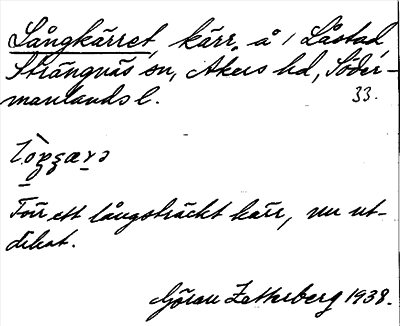 Långkärret, kärr, å / Låstad,
Strängnäs sn, Åkers hd, Söder-
manlands l. 33.
För ett långsträckt kärr, nu ut-
dikat.
Göran Zetterberg 1938.